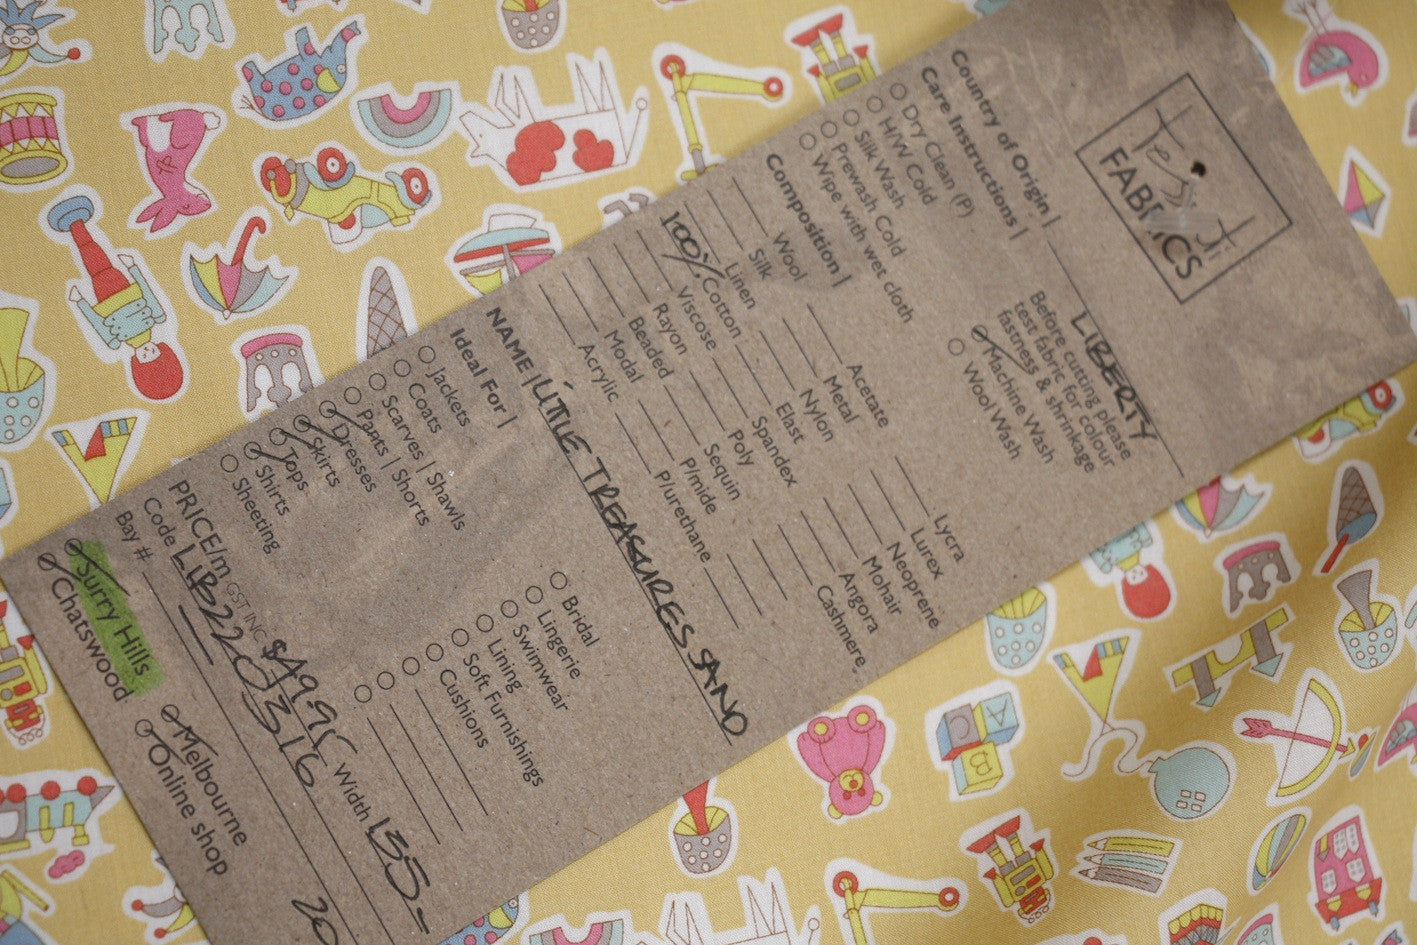 Tessuti
FABRICS
LIBERTY
Country of Origin |
Care Instructions |
Dry Clean (P)
H/W Cold
Silk Wash
Prewash Cold
Wipe with wet cloth
Before cutting please
test fabric for colour
fastness & shrinkage
Machine Wash
Wool Wash
Composition |
Wool
Silk
Linen
100% Cotton
Viscose
Rayon
Beaded
Modal
Acrylic
Acetate
Metal
Nylon
Elast
Spandex
Poly
Sequin
P/mide
P/urethane
Lycra
Lurex
Neoprene
Mohair
Angora
Cashmere
NAME | LITTLE TREASURES SAND
Ideal For |
Jackets
Coats
Scarves | Shawls
Pants | Shorts
Dresses
Skirts
Tops
Shirts
Sheeting
Bridal
Lingerie
Swimwear
Lining
Soft Furnishings
Cushions
PRICE/m GST INC $49.95 Width 135-
Code LIB2203316
Bay #
Surry Hills
Chatswood
Melbourne
Online shop
20
A
B